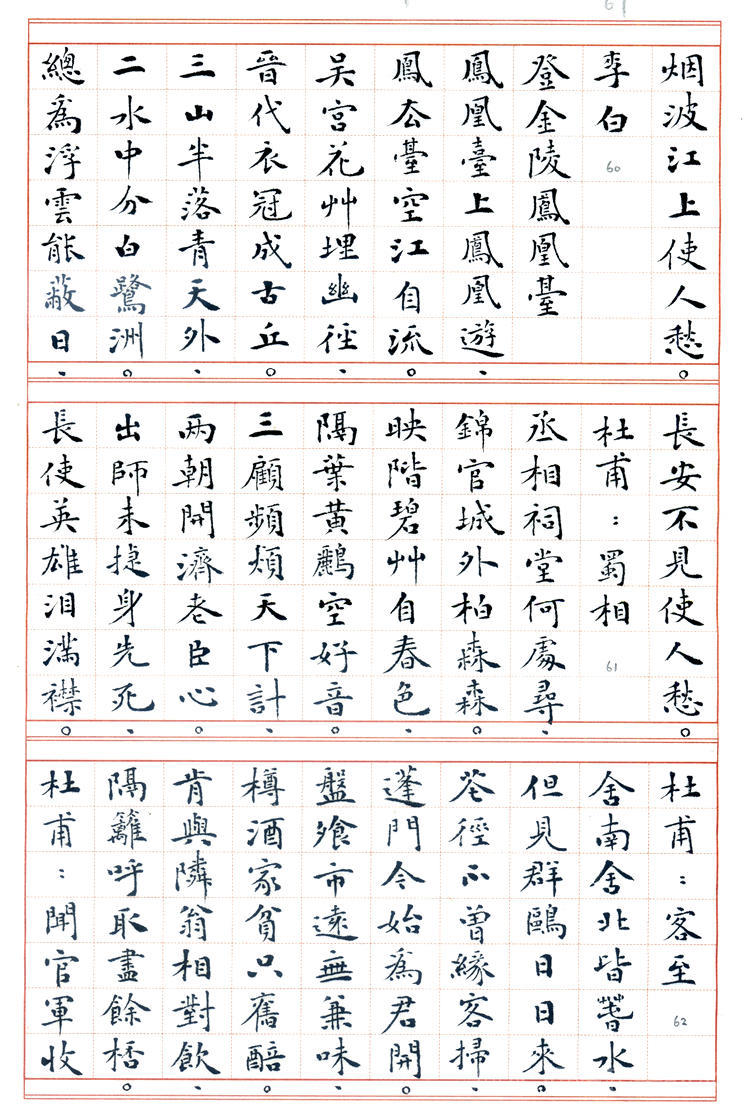 烟波江上使人愁。
李白 60
登金陵鳳凰臺
鳳凰臺上鳳凰遊、
鳳去臺空江自流。
吳宮花艸埋幽徑、
晉代衣冠成古丘。
三山半落青天外、
二水中分白鷺洲。
總爲浮雲能蔽日、
長安不見使人愁。
杜甫：蜀相 61
丞相祠堂何處尋、
錦官城外柏森森。
映階碧艸自春色、
隔葉黃鸝空好音。
三顧頻煩天下計、
兩朝開濟老臣心。
出師未捷身先死、
長使英雄泪滿襟。
杜甫：客至 62
舍南舍北皆萅水、
但見群鷗日日來。
花徑不曾緣客掃、
蓬門今始爲君開。
盤飧市遠無兼味、
樽酒家貧只舊醅。
肯與隣翁相對飲、
隔籬呼取盡餘桮。
杜甫：聞官軍收